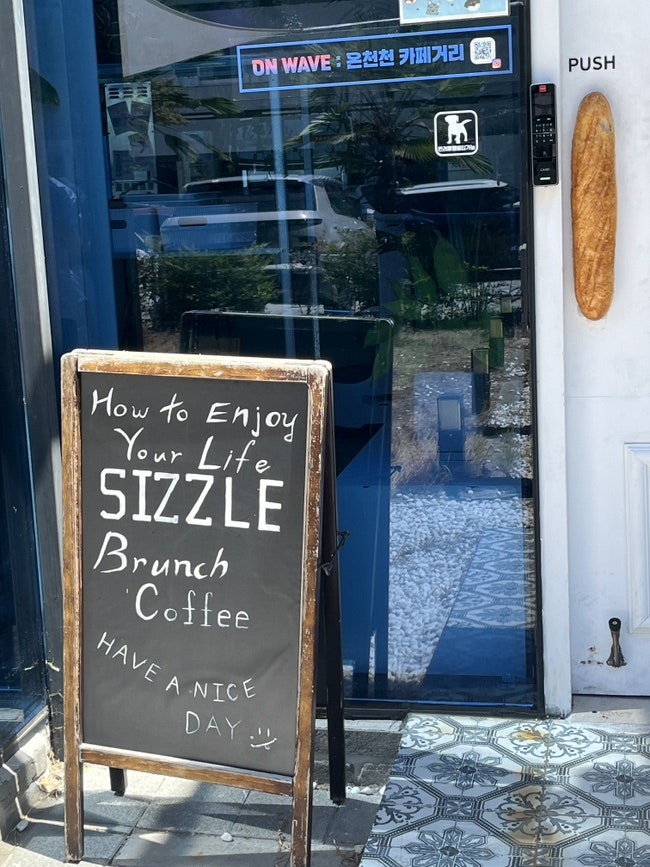 ON WAVE : 온천천 카페거리
PUSH
반려동물출입가능
How to Enjoy
Your Life
SIZZLE
Brunch
Coffee
HAVE A NICE
DAY